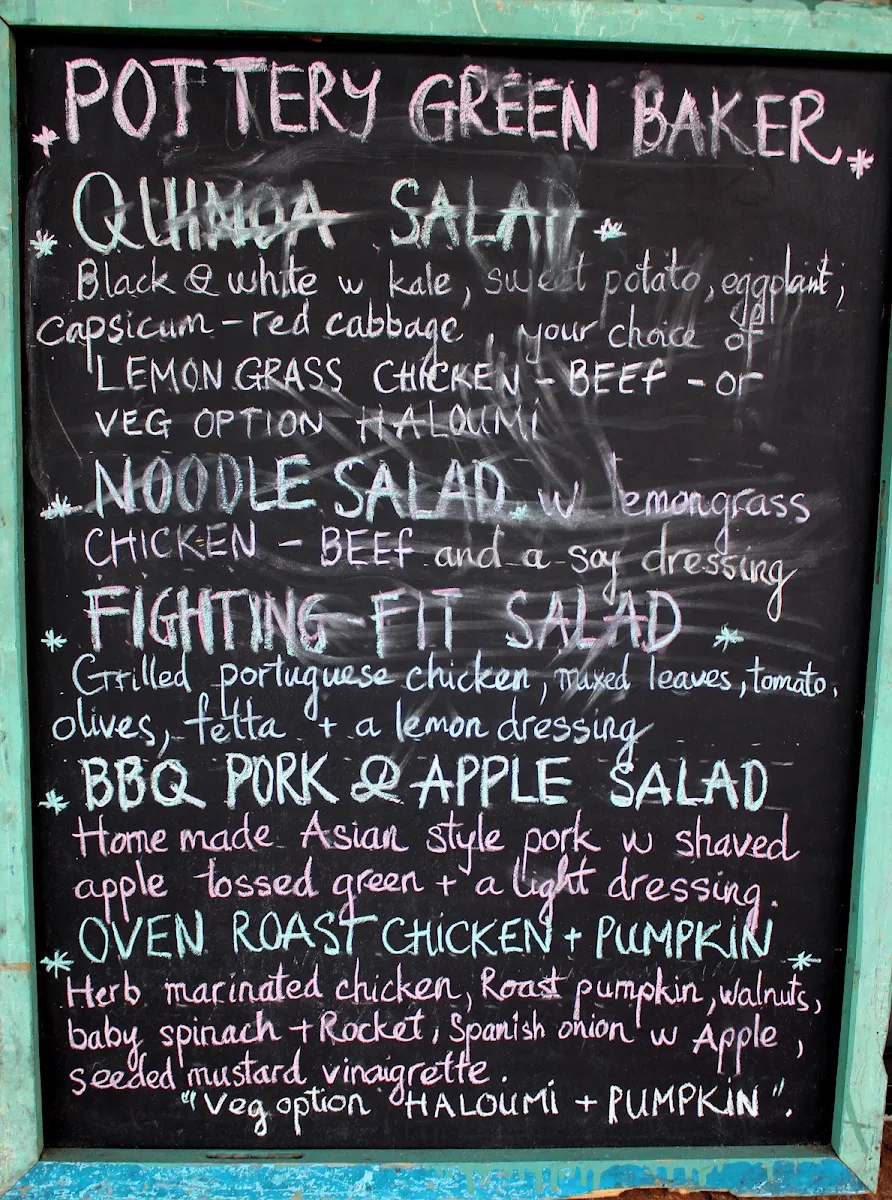 POTTERY GREEN BAKER
* QUINOA SALAD *
Black & white w kale, sweet potato, eggplant,
capsicum - red cabbage, your choice of
LEMON GRASS CHICKEN - BEEF - or
VEG OPTION HALOUMI
* NOODLE SALAD * w lemongrass
CHICKEN - BEEF and a soy dressing
* FIGHTING FIT SALAD *
Grilled portuguese chicken, mixed leaves, tomato,
olives, fetta + a lemon dressing
* BBQ PORK & APPLE SALAD
Home made Asian style pork w shaved
apple tossed green + a light dressing.
* OVEN ROAST CHICKEN + PUMPKIN *
Herb marinated chicken, Roast pumpkin, walnuts,
baby spinach + Rocket, Spanish onion w Apple,
seeded mustard vinaigrette.
"Veg option HALOUMI + PUMPKIN".